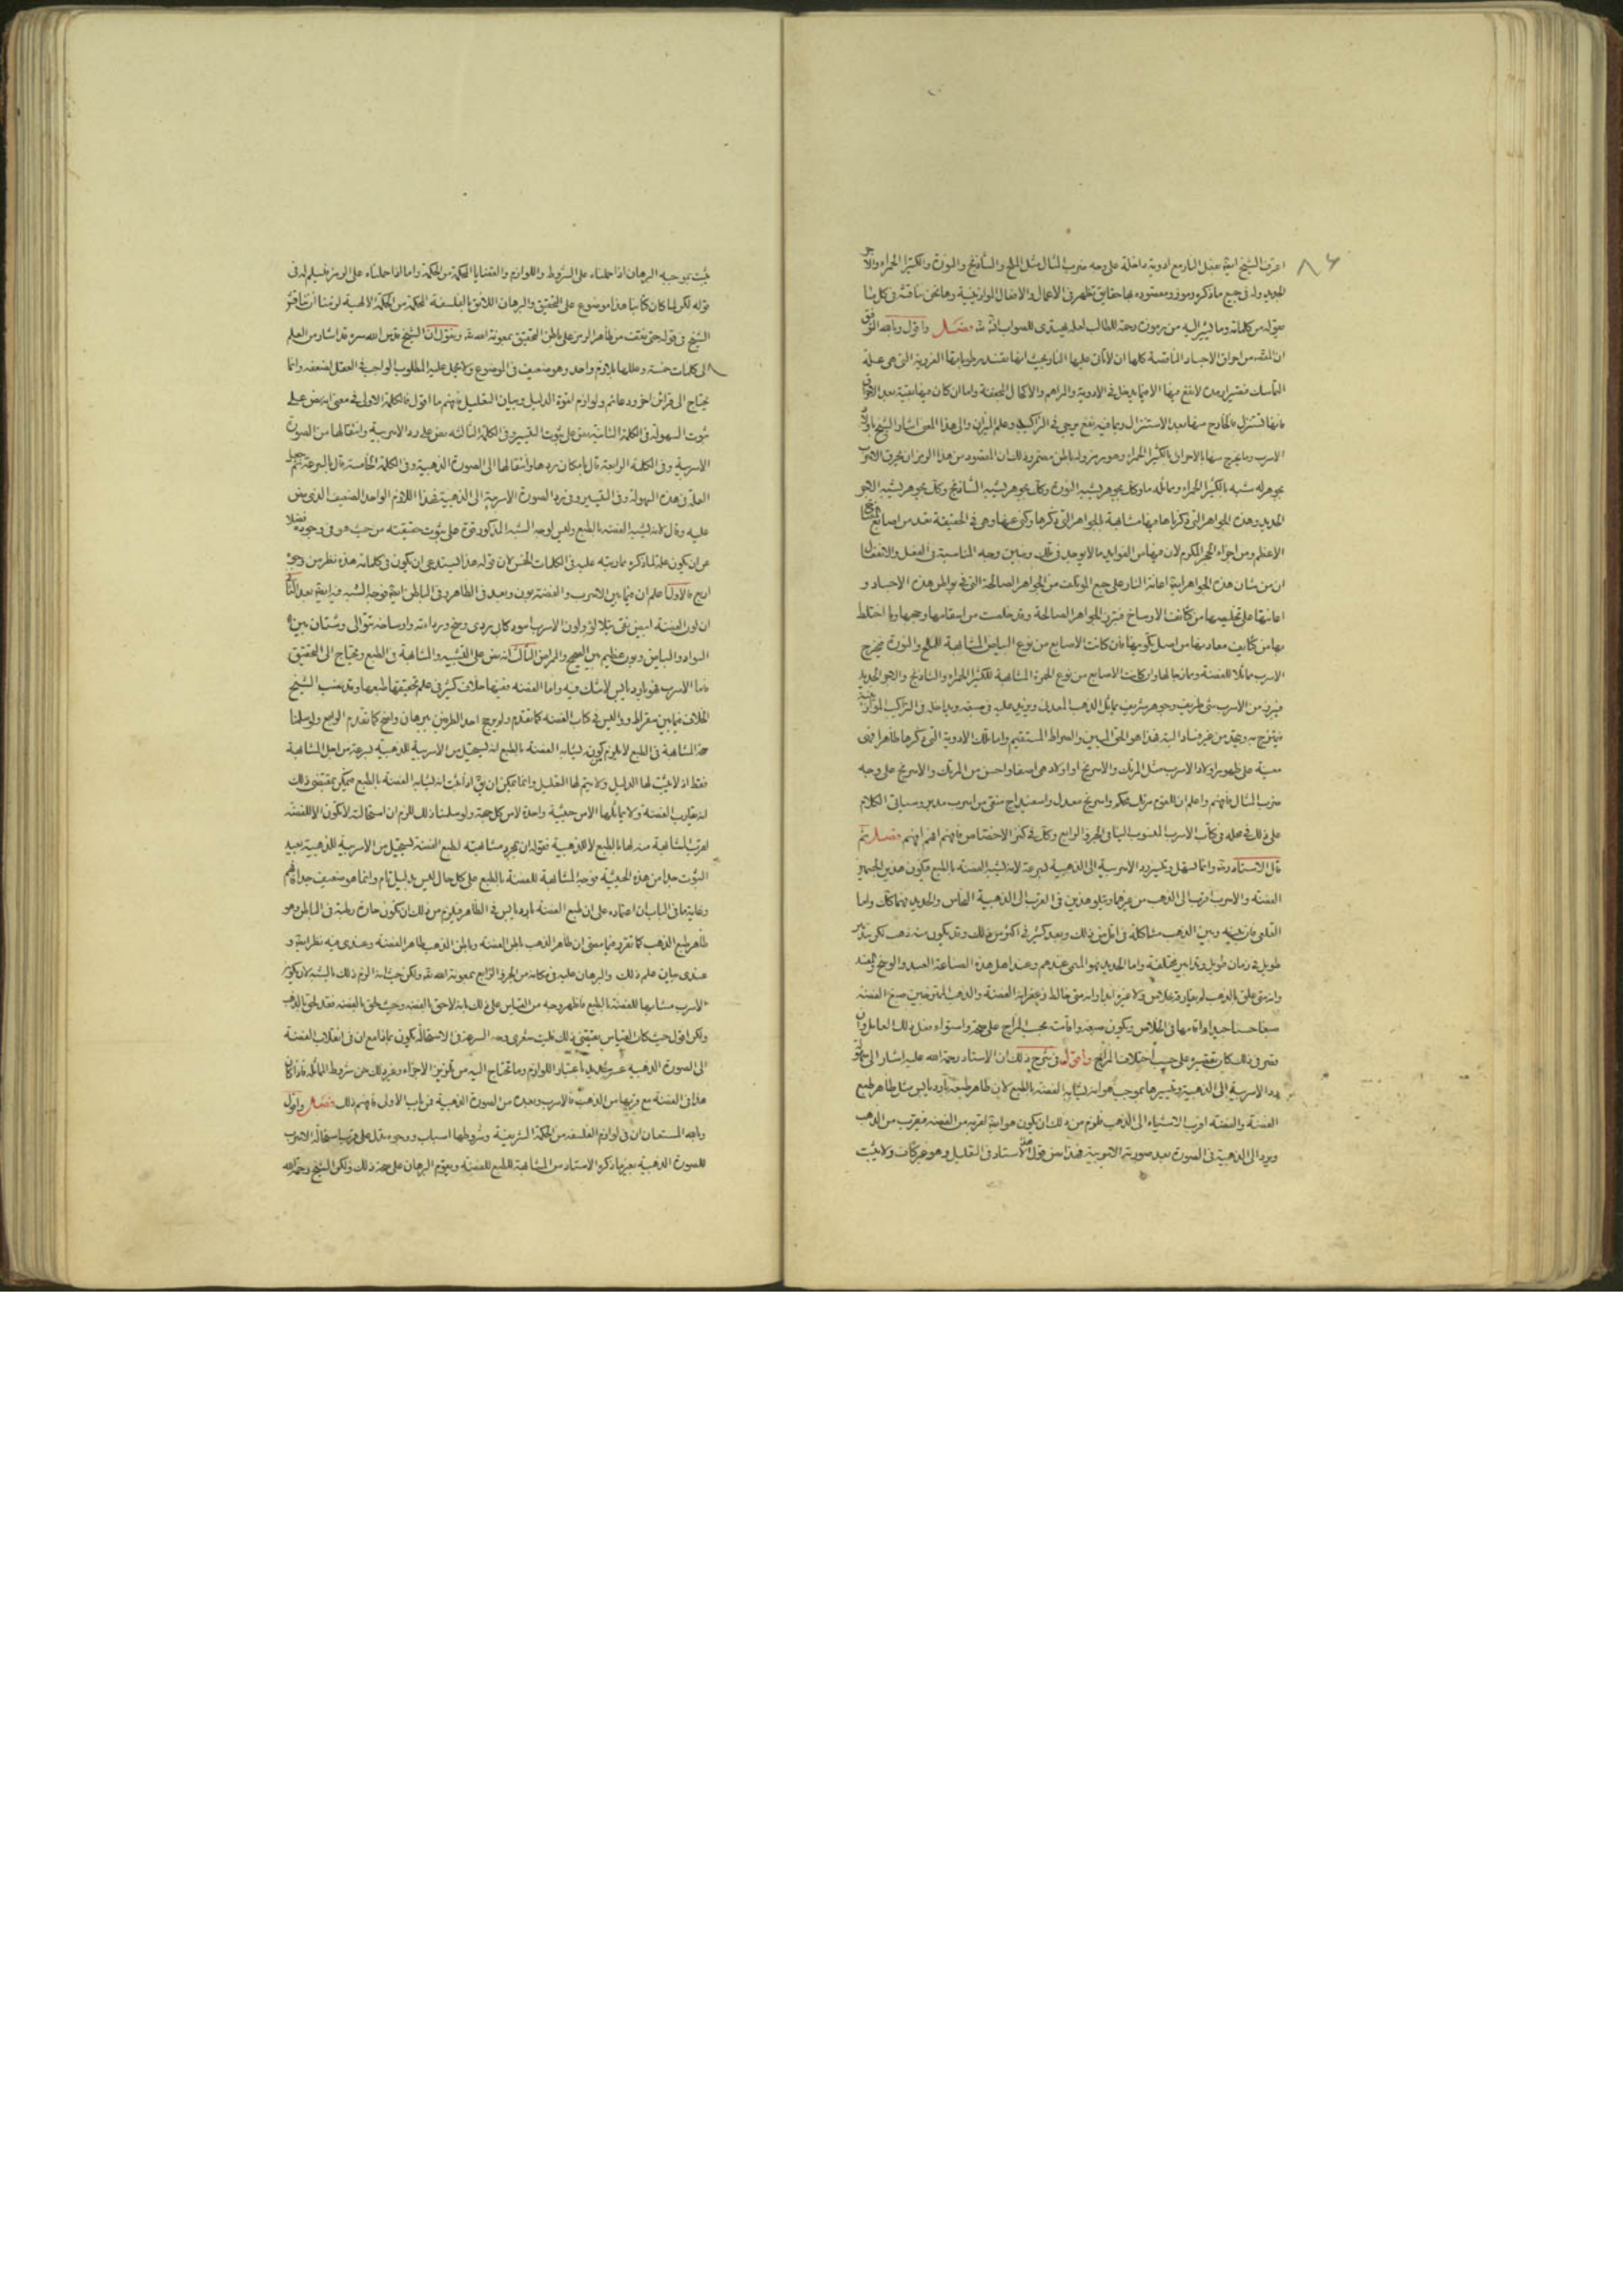 اعرف الشيخ ايضا بفعل النار مع ادوية داخلة على وجه ضرب المثال مثل الملح والشاذنج والنورة والكثيرا الحمراء والآجر
الجديد وله في جميع ما ذكره رموز ومقصوده بها حقايق تظهر في الاعمال والافعال الموازينية وها نحن نناقشه في كل ما
يقوله من كلماته وما يشير اليه من رموزه رحمة للطالب لعله يهتدى للصواب ان شاء الله فصل واقول وبالله التوفيق
ان من احراق الاجساد الناقصة كلها ان لا تأتى عليها النار بحيث انها تفسد رطوباتها الغروية التى هى علة
التماسك فتصير رمادا لا نفع فيها الا فيما يدخل في الادوية والمراهم والاكحال المجففة واما ان كان فيها بقية بعد الاحراق
فانها تستنزل فالخارج منها بعد الاستنزال ربما فيه نفع يرجى في التراكيب وعلم الميزان والى هذا المعنى اشار الشيخ باولاد
الاسرب وما يخرج منها بالاحراق بالكثيرا الحمراء وهو رمز وله باطن مضمر وذلك ان المقصود من هذا الرمز ان يحرق الاسرب
بجوهر له شبه بالكثيرا الحمراء ومماثلة ما وكل بجوهر يشبه النورة وكل بجوهر يشبه الشاذنج وكل بجوهر يشبه الآجر
الجديد وهذه الجواهر التى ذكرناها فيها مشابهة للجواهر التى ذكرها وكنى عنها وهى في الحقيقة تعد من اصابغ
الاعظم ومن اجزاء الحجر المكرم لان فيها من الفوايد ما لا يوجد في تلك وبين وجه المناسبة في الفعل والانفعال
ان من شان هذه الجواهر ايضا اعانة النار على جمع المؤتلف من الجواهر الصالحة التى في بواطن هذه الاجساد و
اعانتها على تخليصها من كثائف الاوساخ فتبرز الجواهر الصالحة وقد خلصت من اسقامها وحجبها وما اختلط
بها من كثايف معادنها من اصل تكوينها فان كانت الاصابع من نوع البياض المشابهة للملح والنورة فيخرج
الاسرب مماثلا للفضة ومازجا لها وان كانت الاصابع من نوع الحمرة المشابهة للكثيرا الحمراء والشاذنج والآجر الجديد
فيبرز من الاسرب شئ ظريف وجوهر شريف يماثل الذهب المعدنى ويزيد عليه في صبغه ويداخل في التراكيب
فيمتزج به ويتحد من غير فساد البتة فهذا هو الحق المبين والصراط المستقيم واما تلك الادوية التى ذكرها ظاهرا فهى
معينة على ظهور اولاد الاسرب مثل المرتك والاسرنج او اولاد هى اصفا واحسن من المرتك والاسرنج على وجه
ضرب المثال فافهم واعلم ان للقوم مرتك محكم واسرنج معدل واسفيداج منقى من اسرب مدبر وسياتى الكلام
على ذلك في محله في كتاب الاسرب المنسوب الينا في الجزء الرابع وكل في كنز الاختصاص فافهم افهم افهم فصل ثم
قال الاستاد وقد وانما سهل وتيسر رد الاسربية الى الذهبية بسرعة لانه يشبه الفضة بالطبع فيكون هذين الجسمين
الفضة والاسرب اقرب الى الذهب من غيرهما ويتلو هذين في القرب الى الذهبية النحاس والحديد فيما كلت واما
القلعى فان بينه وبين الذهب مشاكلة في اقل من ذلك وبعد كثير في اكثر من ذلك وقد يكون منه ذهب لكن بتدبير
طويل في زمان طويل وتدابير مختلفة واما الحديد فهو المنى عندهم وعند اهل هذه الصناعة العبد والوسخ
وانه متى علق بالذهب لم يفارقه بخلاص ولا غيره ابدا وانه متى خالط زعفرانه الفضة والذهب المتوقفين صبغ الفضة
صبغا حسنا جيدا دائما فيها في الخلاص ويكون صبغه واقامته بحسب المزاج على صحة واستواء بفعل ذلك العامل وان
قصر في ذلك كان تقصيره على حسب اختلاف المزاج واقول في شرح ذلك ان الاستاد رحمة الله عليه اشار الى
رد الاسربية الى الذهبية وتيسيرها بموجب هو انه يشابه الفضة بالطبع لان ظاهر طبعه بارد يابس مثل ظاهر طبع
الفضة والفضة اقرب الاشياء الى الذهب فلزم من ذلك ان يكون هو ايضا لقربه من الفضة فيقرب من الذهب
ويرد الى الذهبية في الصورة بعد صورته الاسربية فهذا من قول الاستاد في التعليل وهو غير كاف ولا يثبت
يثبت بموجبه البرهان اذا حملناه على الشروط واللوازم والقضايا المحكمة من الحكمة واما اذا حملناه على الرمز فيسلم له في
قوله لكن لما كان كتابنا هذا موضوع على التحقيق والبرهان اللائق بالفلسفة المحكمة من الحكمة الالهية لزمنا ان نناقش
الشيخ في قوله حتى نقف من ظاهر الرمز على باطن التحقيق بمعونة الله تعالى ونقول ان الشيخ قدس الله سره قد اشار من العلم
الى كلمات خمسة وعللها بلازم واحد وهو ضعيف في الموضوع ولا يحمل عليه المطلوب الواجب في العقل لضعفه وانما
يحتاج الى قرائن اخر ودعائم ولوازم لقوة الدليل وبيان التعليل فافهم ما اقول فالكلمة الاولى في معنى انه نص على
ثبوت السهولة وفى الكلمة الثانية نص على ثبوت التيسير وفى الكلمة الثالثة نص على رد الاسربية وانتقالها من الصورة
الاسربية وفى الكلمة الرابعة قال بامكان ردها وانتقالها الى الصورة الذهبية وفى الكلمة الخامسة قال بالسرعة ثم جعل
العلة في هذه السهولة وفى التيسير وفى رد الصورة الاسربية الى الذهبية بهذا اللازم الواحد الضعيف الذى نص
عليه وقال لانه يشبه الفضة بالطبع وليس لوجه الشبه المذكور قوة على ثبوت حقيقته من حيث هو في وجوبه فضلا
عن ان يكون علة لما ذكره مما رتبه عليه في الكلمات الخمس لان قوله هذا يستدعى ان يكون في كلماته هذه نظر من وجوه
اربع فالاول اعلم ان فيما بين الاسرب والفضة بون وبعد في الظاهر وفى الباطن ايضا فوجه الشبه فيه ايضا بعد الثانى
ان لون الفضة ابيض نقى يتلالؤ ولون الاسرب اسود كابى ردى وسخ ورداءته واوساخه تتوالى وشتان بين
السواد والبياض وبون عظيم بين الصحيح والمراض الثالث انه نص على التشبيه والمشابهة في الطبع ويحتاج الى التحقيق
فاما الاسرب فهو بارد يابس لا شك فيه واما الفضة ففيها خلاف كثير في علم تحقيقها طبعها وقد نصب الشيخ
الخلاف فيما بين سقراط وواليس في كتاب الفضة كما تقدم ولم يرجح احد الطرفين ببرهان واضح كما تقدم الرابع ولو سلمنا
صحة المشابهة في الطبع لا يلزم بكونه يشابه الفضة بالطبع انه يستحيل من الاسربية للذهبية بسرعة من اجل المشابهة
فقط اذ لا يثبت لها الدليل ولا يتم لها التعليل وانما يمكن ان نقول اذا ثبت انه يشابه الفضة بالطبع فيمكن بمقتضى ذلك
انه يقارب الفضة ولا يماثلها الا من حيثية واحدة لا من كل جهة ولو سلمنا ذلك للزم ان استحالته لا تكون الا للفضة
لقرب المشابهة منه لها بالطبع لا للذهبية فقوله ان بمجرد مشابهته لطبع الفضة يستحيل من الاسربية للذهبية بعيد
الثبوت جدا من هذه الحيثية فوجه المشابهة للفضة بالطبع على كل حال ليس بدليل تام وانما هو ضعيف جدا فافهم
وغاية ما في الباب ان اعتماده على ان طبع الفضة بارد يابس في الظاهر فيلزم من ذلك ان تكون حارة رطبة في الباطن وهو
ظاهر طبع الذهب كما تقرر فيما معنى ان ظاهر الذهب باطن الفضة وباطن الذهب ظاهر الفضة وعندى فيه نظر ايضا و
عندى بيان علم ذلك والبرهان عليه في مكانه من الجزء الرابع بمعونة الله تعالى ولكن حيث انه الزم ذلك بالشبه لان يكون
الاسرب مشابها للفضة بالطبع فاظهر وجه من القياس على ذلك بانه لاحق بالفضة وحيث لحق بالفضة فقد لحق بالذهب
ولكن اقول حيث كان القياس يقتضى ذلك فليت شعرى وجه السرعة في الاستحالة يكون بماذا مع ان في انقلاب الفضة
الى الصورة الذهبية عسر شديد باعتبار اللوازم وما تحتاج اليه من تمزيز الاجزاء وغير ذلك من شروط المماثلة فاذا كان
هذا في الفضة مع قربها من الذهب فالاسرب وبعده من الصورة الذهبية من باب الاولى فافهم ذلك فصل واقول
وبالله المستعان ان في لوازم الفلسفة من الحكمة الشريفة وشروطها اسباب ووجوه تدل على قرب استحالة الاسرب
للصورة الذهبية بغير ما ذكره الاستاد من المشابهة للطبع للفضة ويقوم البرهان على صحة ذلك ولكن الشيخ رحمه الله